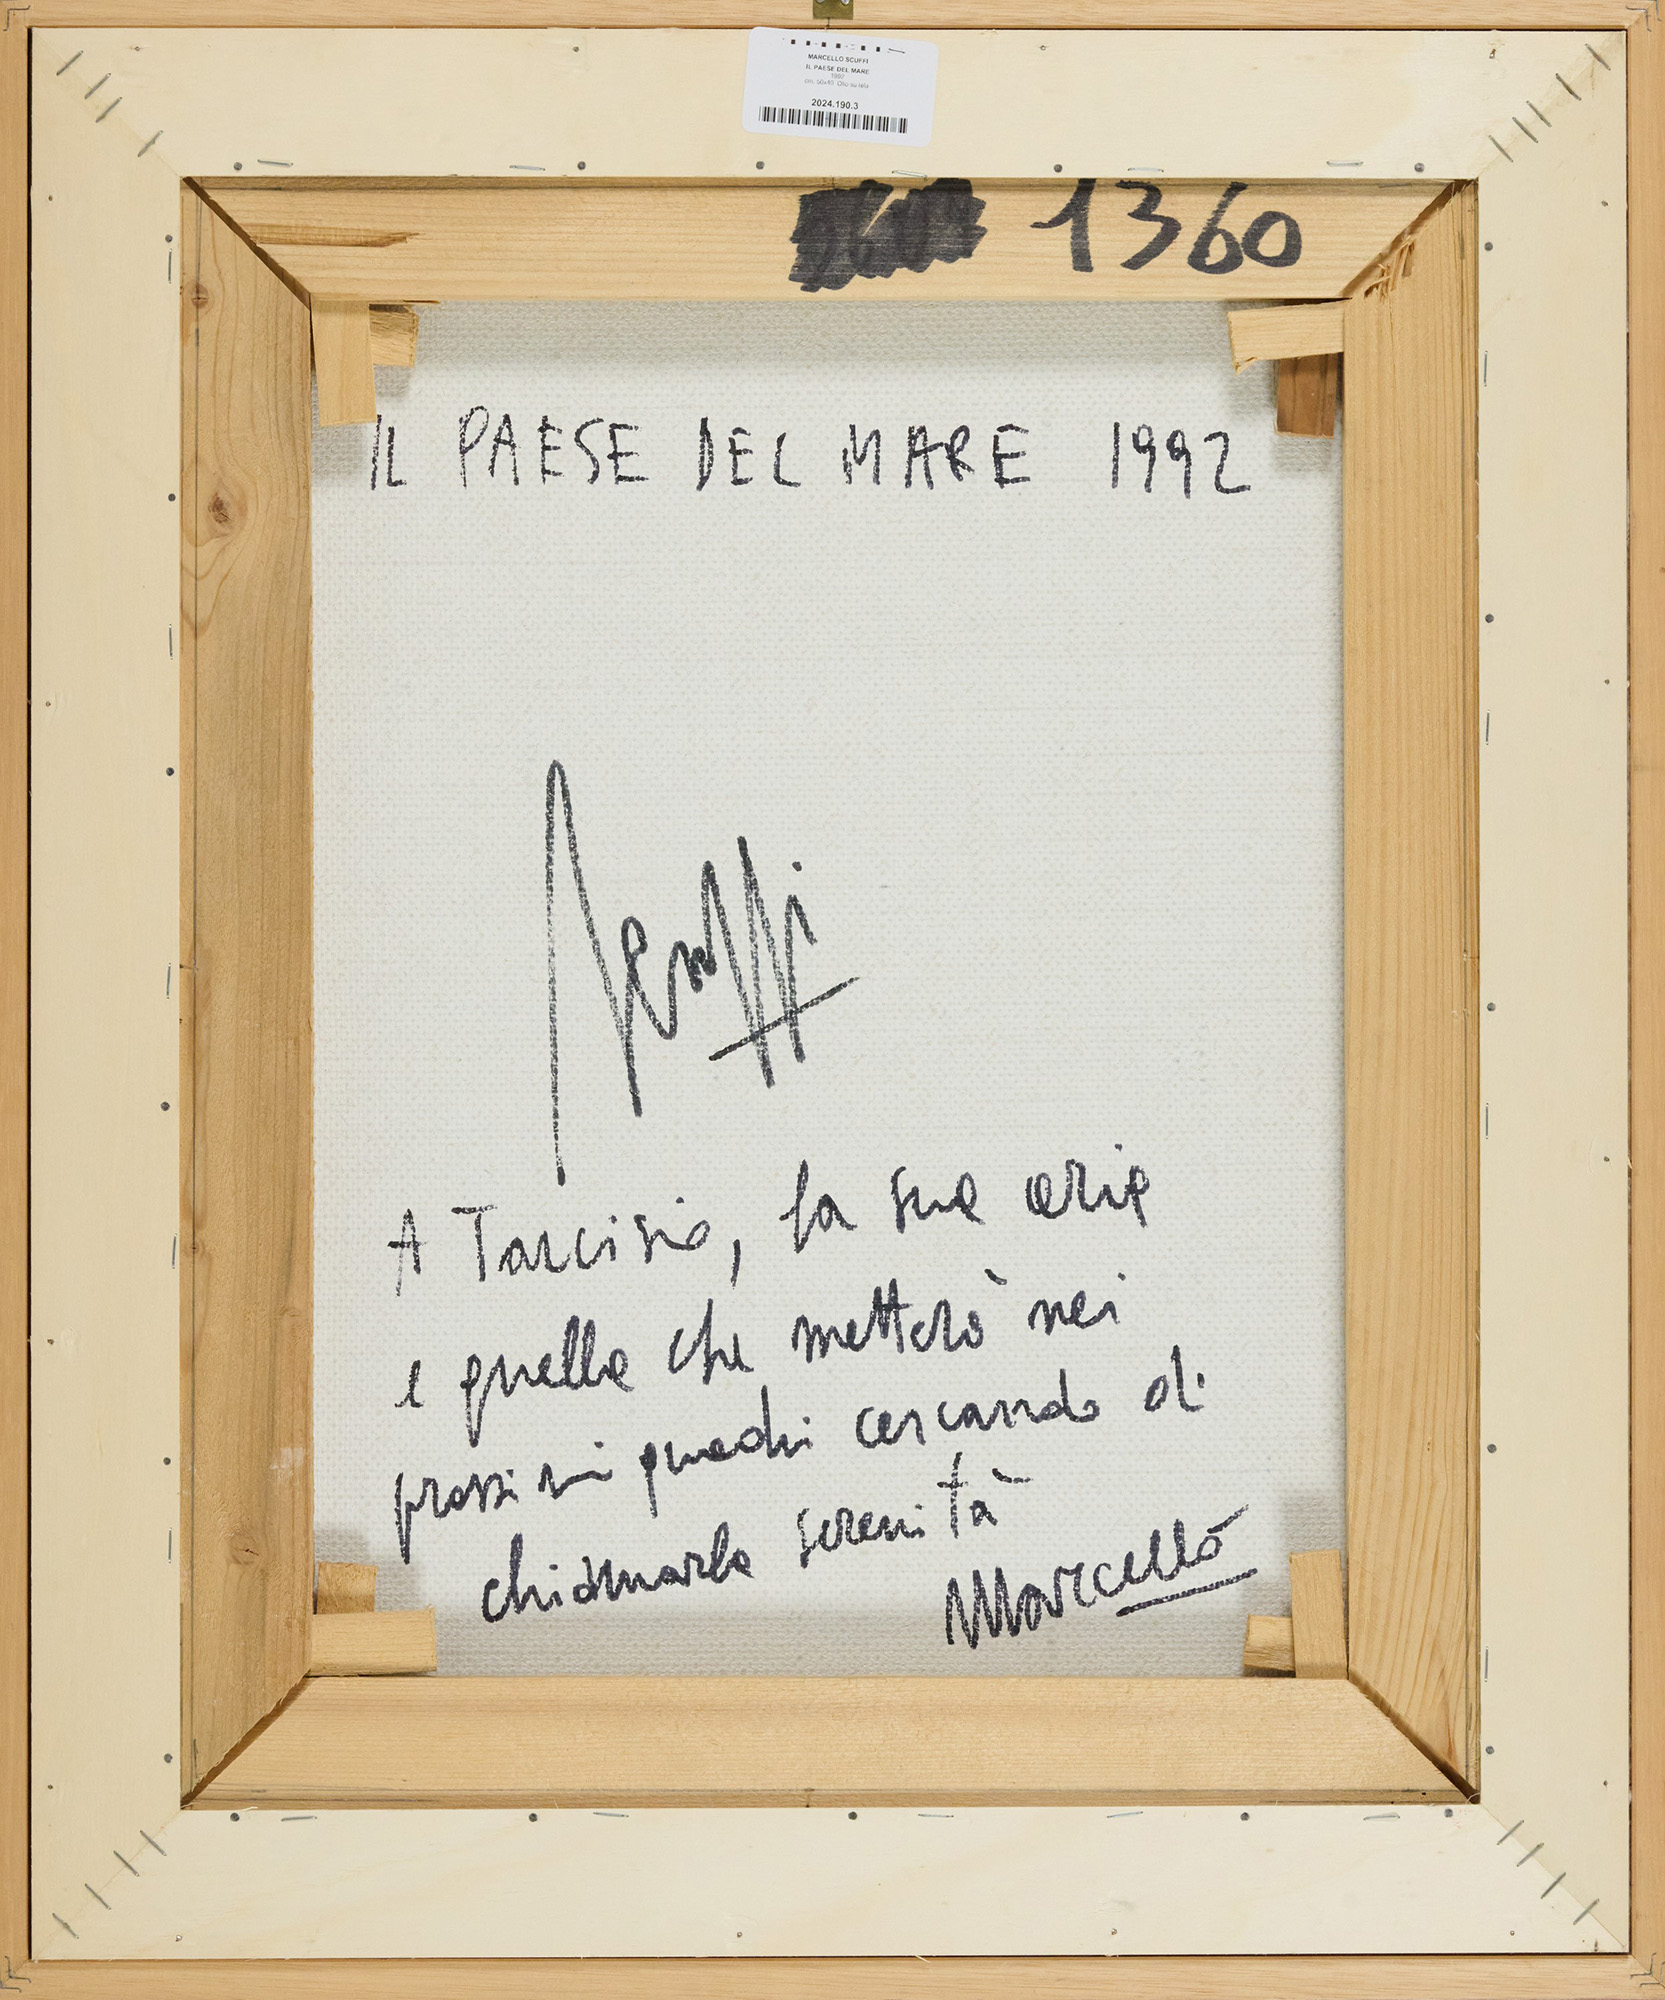 MARCELLO SCUFFI
IL PAESE DEL MARE
1992
cm. 50x40 Olio su tela
2024.190.3
1360
IL PAESE DEL MARE 1992
Scuffi
A Tarcisio, la sua aria
e quella che metterò nei
prossimi quadri cercando di
chiamarla serenità
Marcello